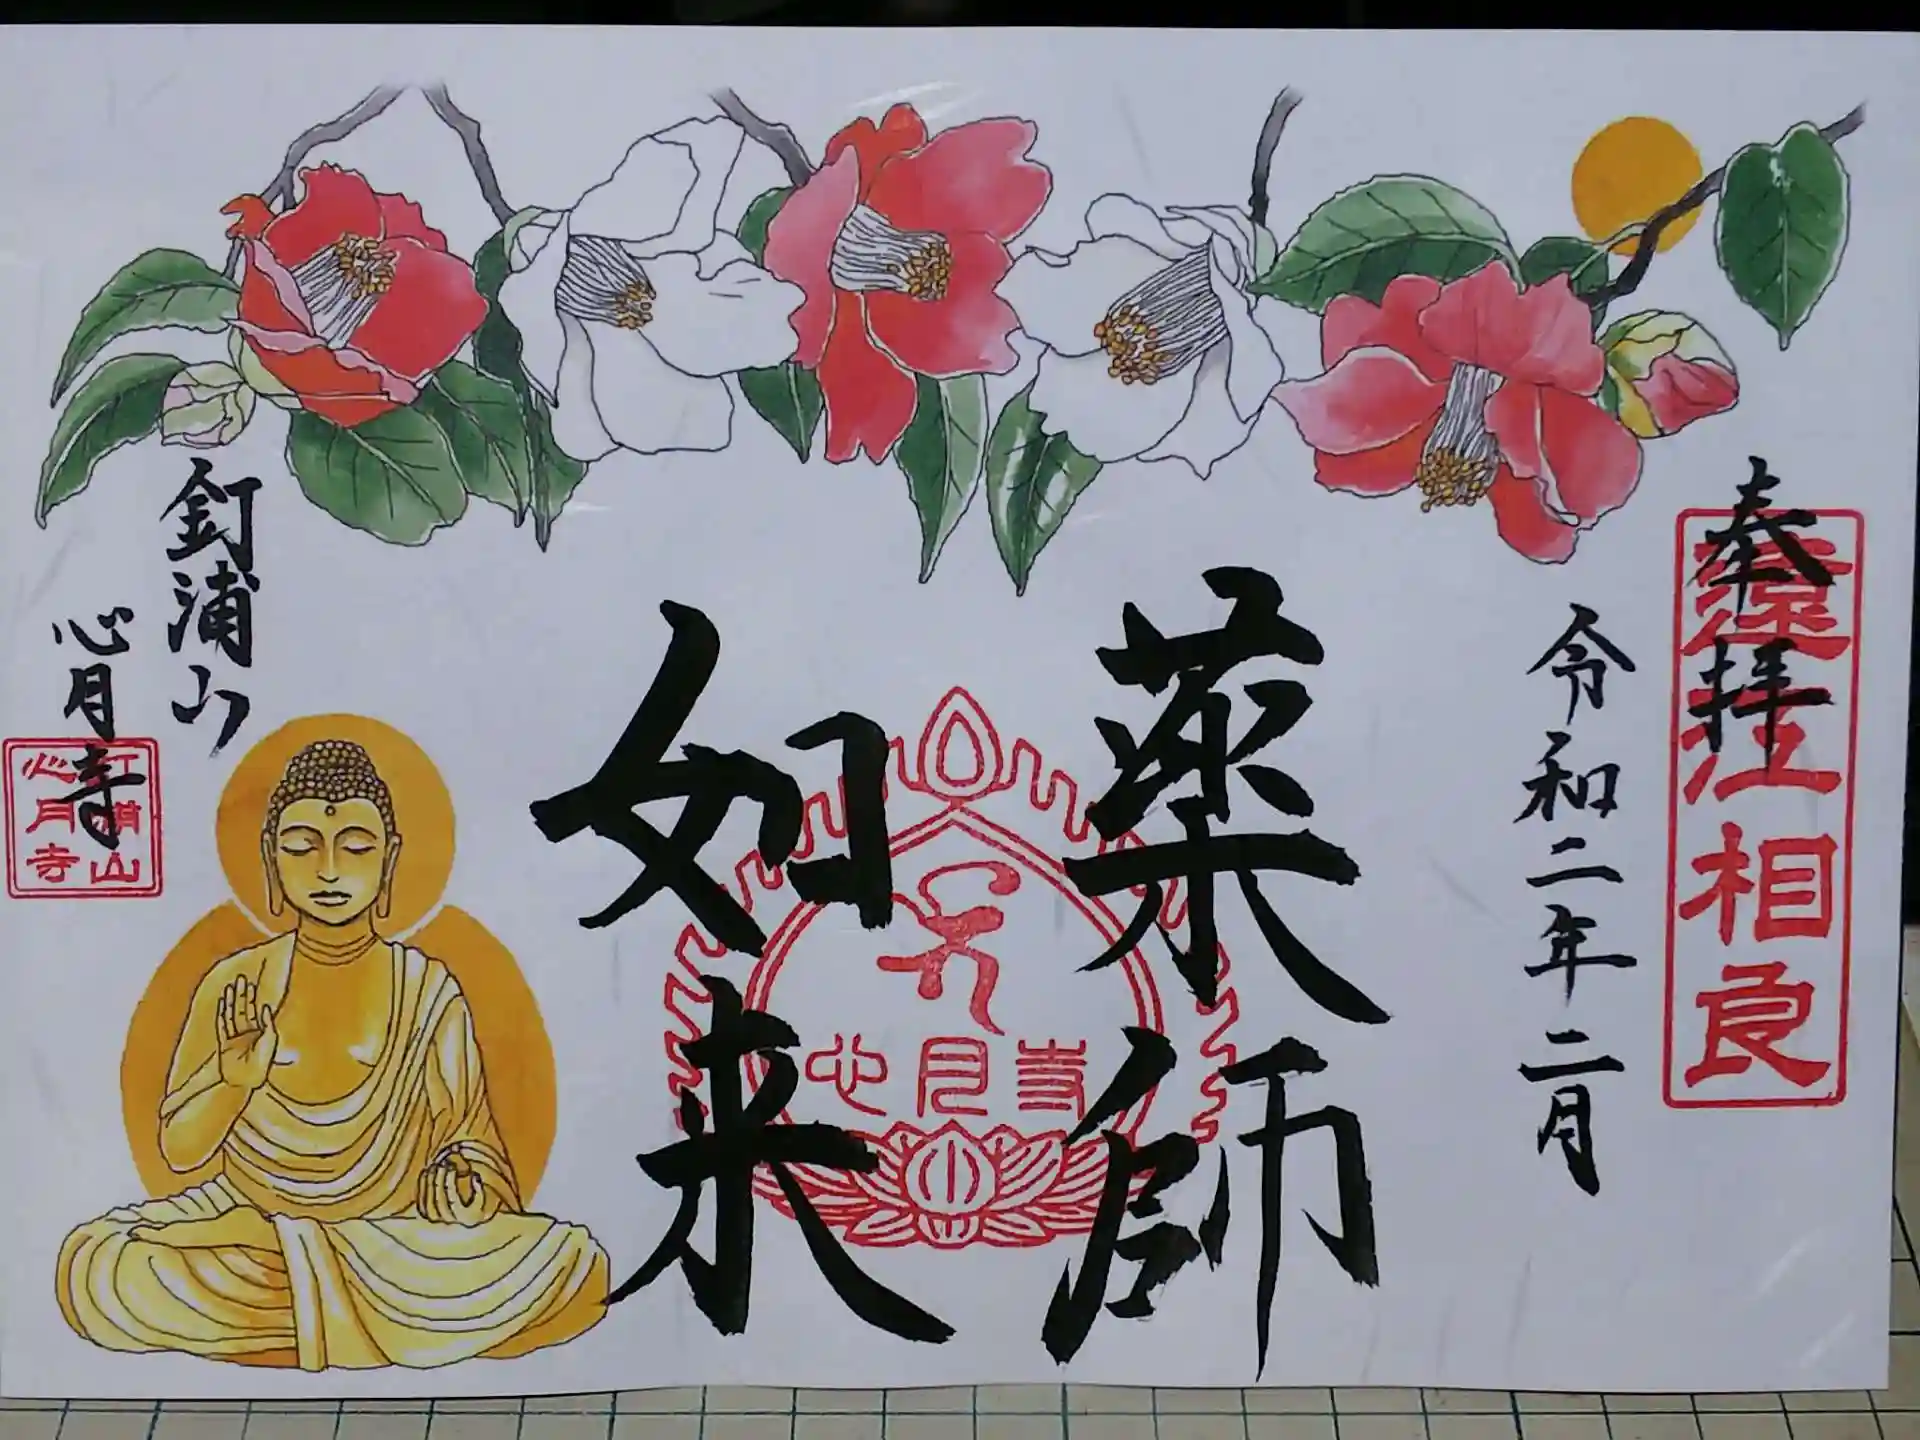 奉拝
遠江相良
令和二年二月
薬師
如来
心月寺
釘浦山
心月寺
釘浦山
心月寺